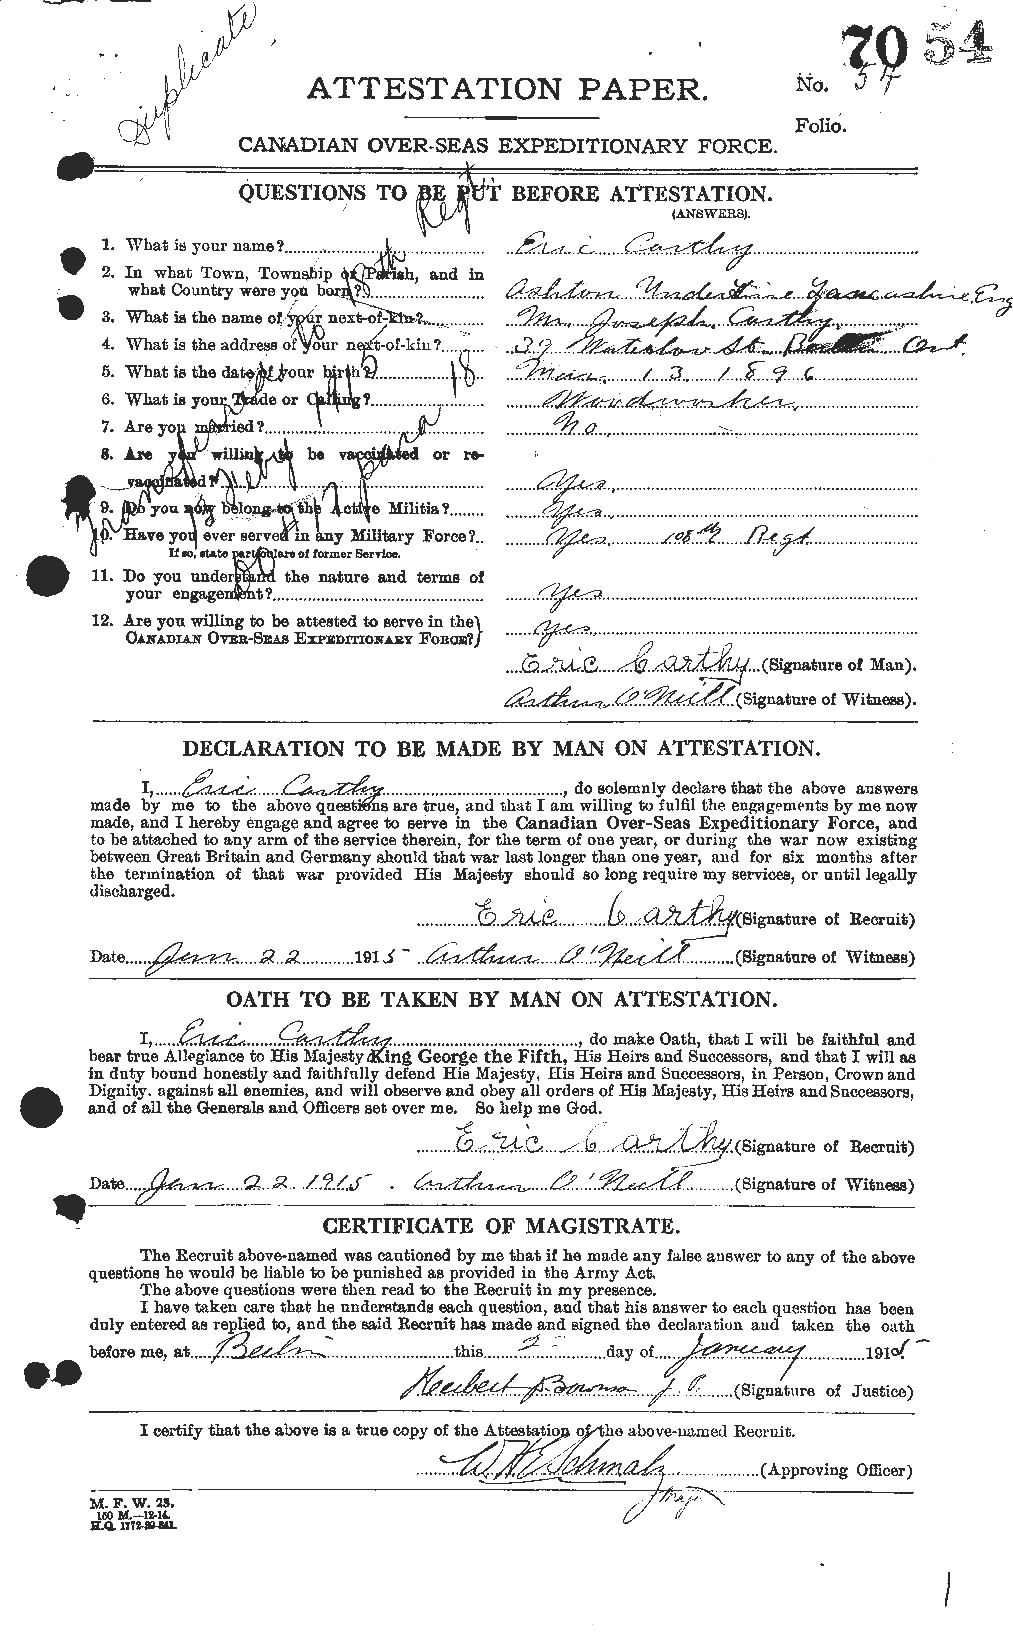 Duplicate
70 54
No. 54
ATTESTATION PAPER.
Folio.
CANADIAN OVER-SEAS EXPEDITIONARY FORCE.
QUESTIONS TO BE PUT BEFORE ATTESTATION.
(ANSWERS).
1. What is your name? Eric Carthy
2. In what Town, Township or Parish, and in
what Country were you born? Ashton Under Line Lancashire Eng
3. What is the name of your next-of-kin? Mr. Joseph Carthy
4. What is the address of your next-of-kin? 39 Waterloo St. Ont.
5. What is the date of your birth? Mar. 13. 1896
6. What is your Trade or Calling? Woodworker,
7. Are you married? No
8. Are you willing to be vaccinated or re-
vaccinated? Yes,
9. Do you now belong to the Active Militia? Yes,
10. Have you ever served in any Military Force? Yes, 108th Regt
If so, state particulars of former Service.
11. Do you understand the nature and terms of
your engagement? Yes
12. Are you willing to be attested to serve in the
CANADIAN OVER-SEAS EXPEDITIONARY FORCE? Yes
Eric Carthy (Signature of Man).
Arthur O'Neill (Signature of Witness).
DECLARATION TO BE MADE BY MAN ON ATTESTATION.
I, Eric Carthy, do solemnly declare that the above answers
made by me to the above questions are true, and that I am willing to fulfil the engagements by me now
made, and I hereby engage and agree to serve in the Canadian Over-Seas Expeditionary Force, and
to be attached to any arm of the service therein, for the term of one year, or during the war now existing
between Great Britain and Germany should that war last longer than one year, and for six months after
the termination of that war provided His Majesty should so long require my services, or until legally
discharged.
Eric Carthy (Signature of Recruit)
Date Jan 22 1915 Arthur O'Neill (Signature of Witness)
OATH TO BE TAKEN BY MAN ON ATTESTATION.
I, Eric Carthy, do make Oath, that I will be faithful and
bear true Allegiance to His Majesty King George the Fifth, His Heirs and Successors, and that I will as
in duty bound honestly and faithfully defend His Majesty, His Heirs and Successors, in Person, Crown and
Dignity, against all enemies, and will observe and obey all orders of His Majesty, His Heirs and Successors,
and of all the Generals and Officers set over me. So help me God.
Eric Carthy (Signature of Recruit)
Date Jan 22 1915. Arthur O'Neill (Signature of Witness)
CERTIFICATE OF MAGISTRATE.
The Recruit above-named was cautioned by me that if he made any false answer to any of the above
questions he would be liable to be punished as provided in the Army Act.
The above questions were then read to the Recruit in my presence.
I have taken care that he understands each question, and that his answer to each question has been
duly entered as replied to, and the said Recruit has made and signed the declaration and taken the oath
before me, at Berlin this day of January 1915
Herbert J. Bowman J.P. (Signature of Justice)
I certify that the above is a true copy of the Attestation of the above-named Recruit.
W H E Schmalz (Approving Officer)
Maj.
M. F. W. 23.
150 M.—12-14.
H.Q. 1772-39-841.